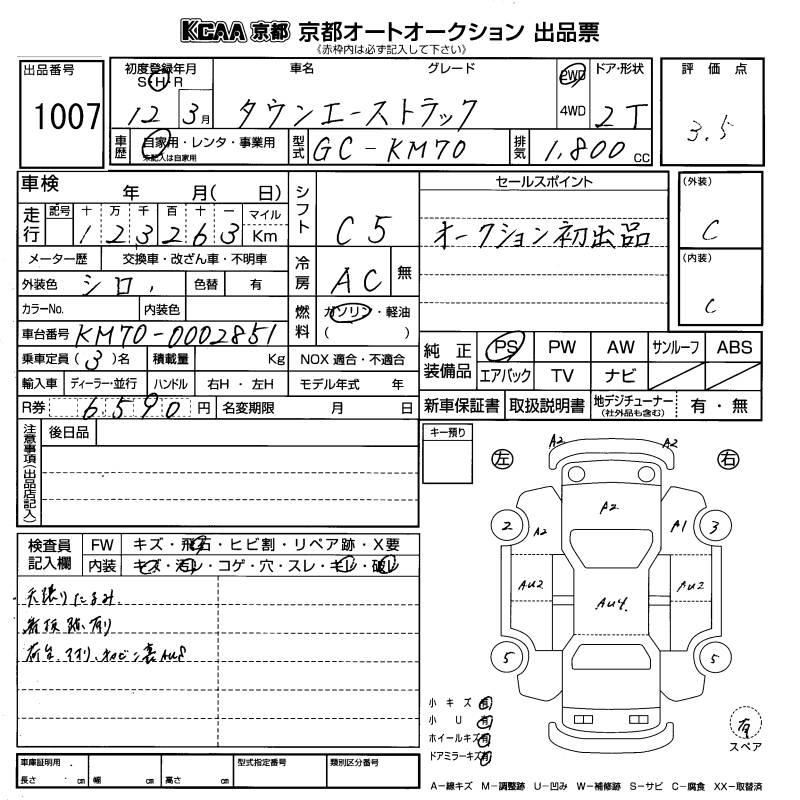 KCAA 京都 京都オートオークション 出品票
《赤枠内は必ず記入して下さい》
出品番号
1007
初度登録年月 車名 グレード 2WD ドア・形状
S・H・R 4WD
12 3月 タウンエーストラック 2T
評価点
3.5
車歴 自家用・レンタ・事業用
未記入は自家用
型式 GC-KM70 排気 1,800 CC
車検 年 月( 日)
走行 記号 十 万 千 百 十 一 マイル
1 2 3 2 6 3 Km
シフト C5
セールスポイント
オークション初出品
(外装)
C
(内装)
C
メーター歴 交換車・改ざん車・不明車
冷房 AC 無
外装色 シロ 色替 有
カラーNo. 内装色
燃料 ガソリン・軽油
( )
車台番号 KM70-0002851
乗車定員(3)名 積載量 Kg NOX 適合・不適合
輸入車 ディーラー・並行 ハンドル 右H・左H モデル年式 年
R券 6590円 名変期限 月 日
純正装備品 PS PW AW サンルーフ ABS
エアバック TV ナビ
新車保証書 取扱説明書 地デジチューナー (社外品も含む) 有・無
注意事項(出品店記入) 後日品
キー預り
検査員記入欄 FW キズ・飛石・ヒビ割・リペア跡・X要
内装 キズ・汚レ・コゲ・穴・スレ・キレ・破レ
天張りたるみ
看板跡有り
左 右
A2 A2
A2
2 A2 A1 3
AU2 AU4 AU2
5 5
小キズ 有
小U 有
ホイールキズ 有
ドアミラーキズ 有
有
スペア
車庫証明用 型式指定番号 類別区分番号
長さ cm 幅 cm 高さ cm
A−線キズ M−調整跡 U−凹み W−補修跡 S−サビ C−腐食 XX−取替済